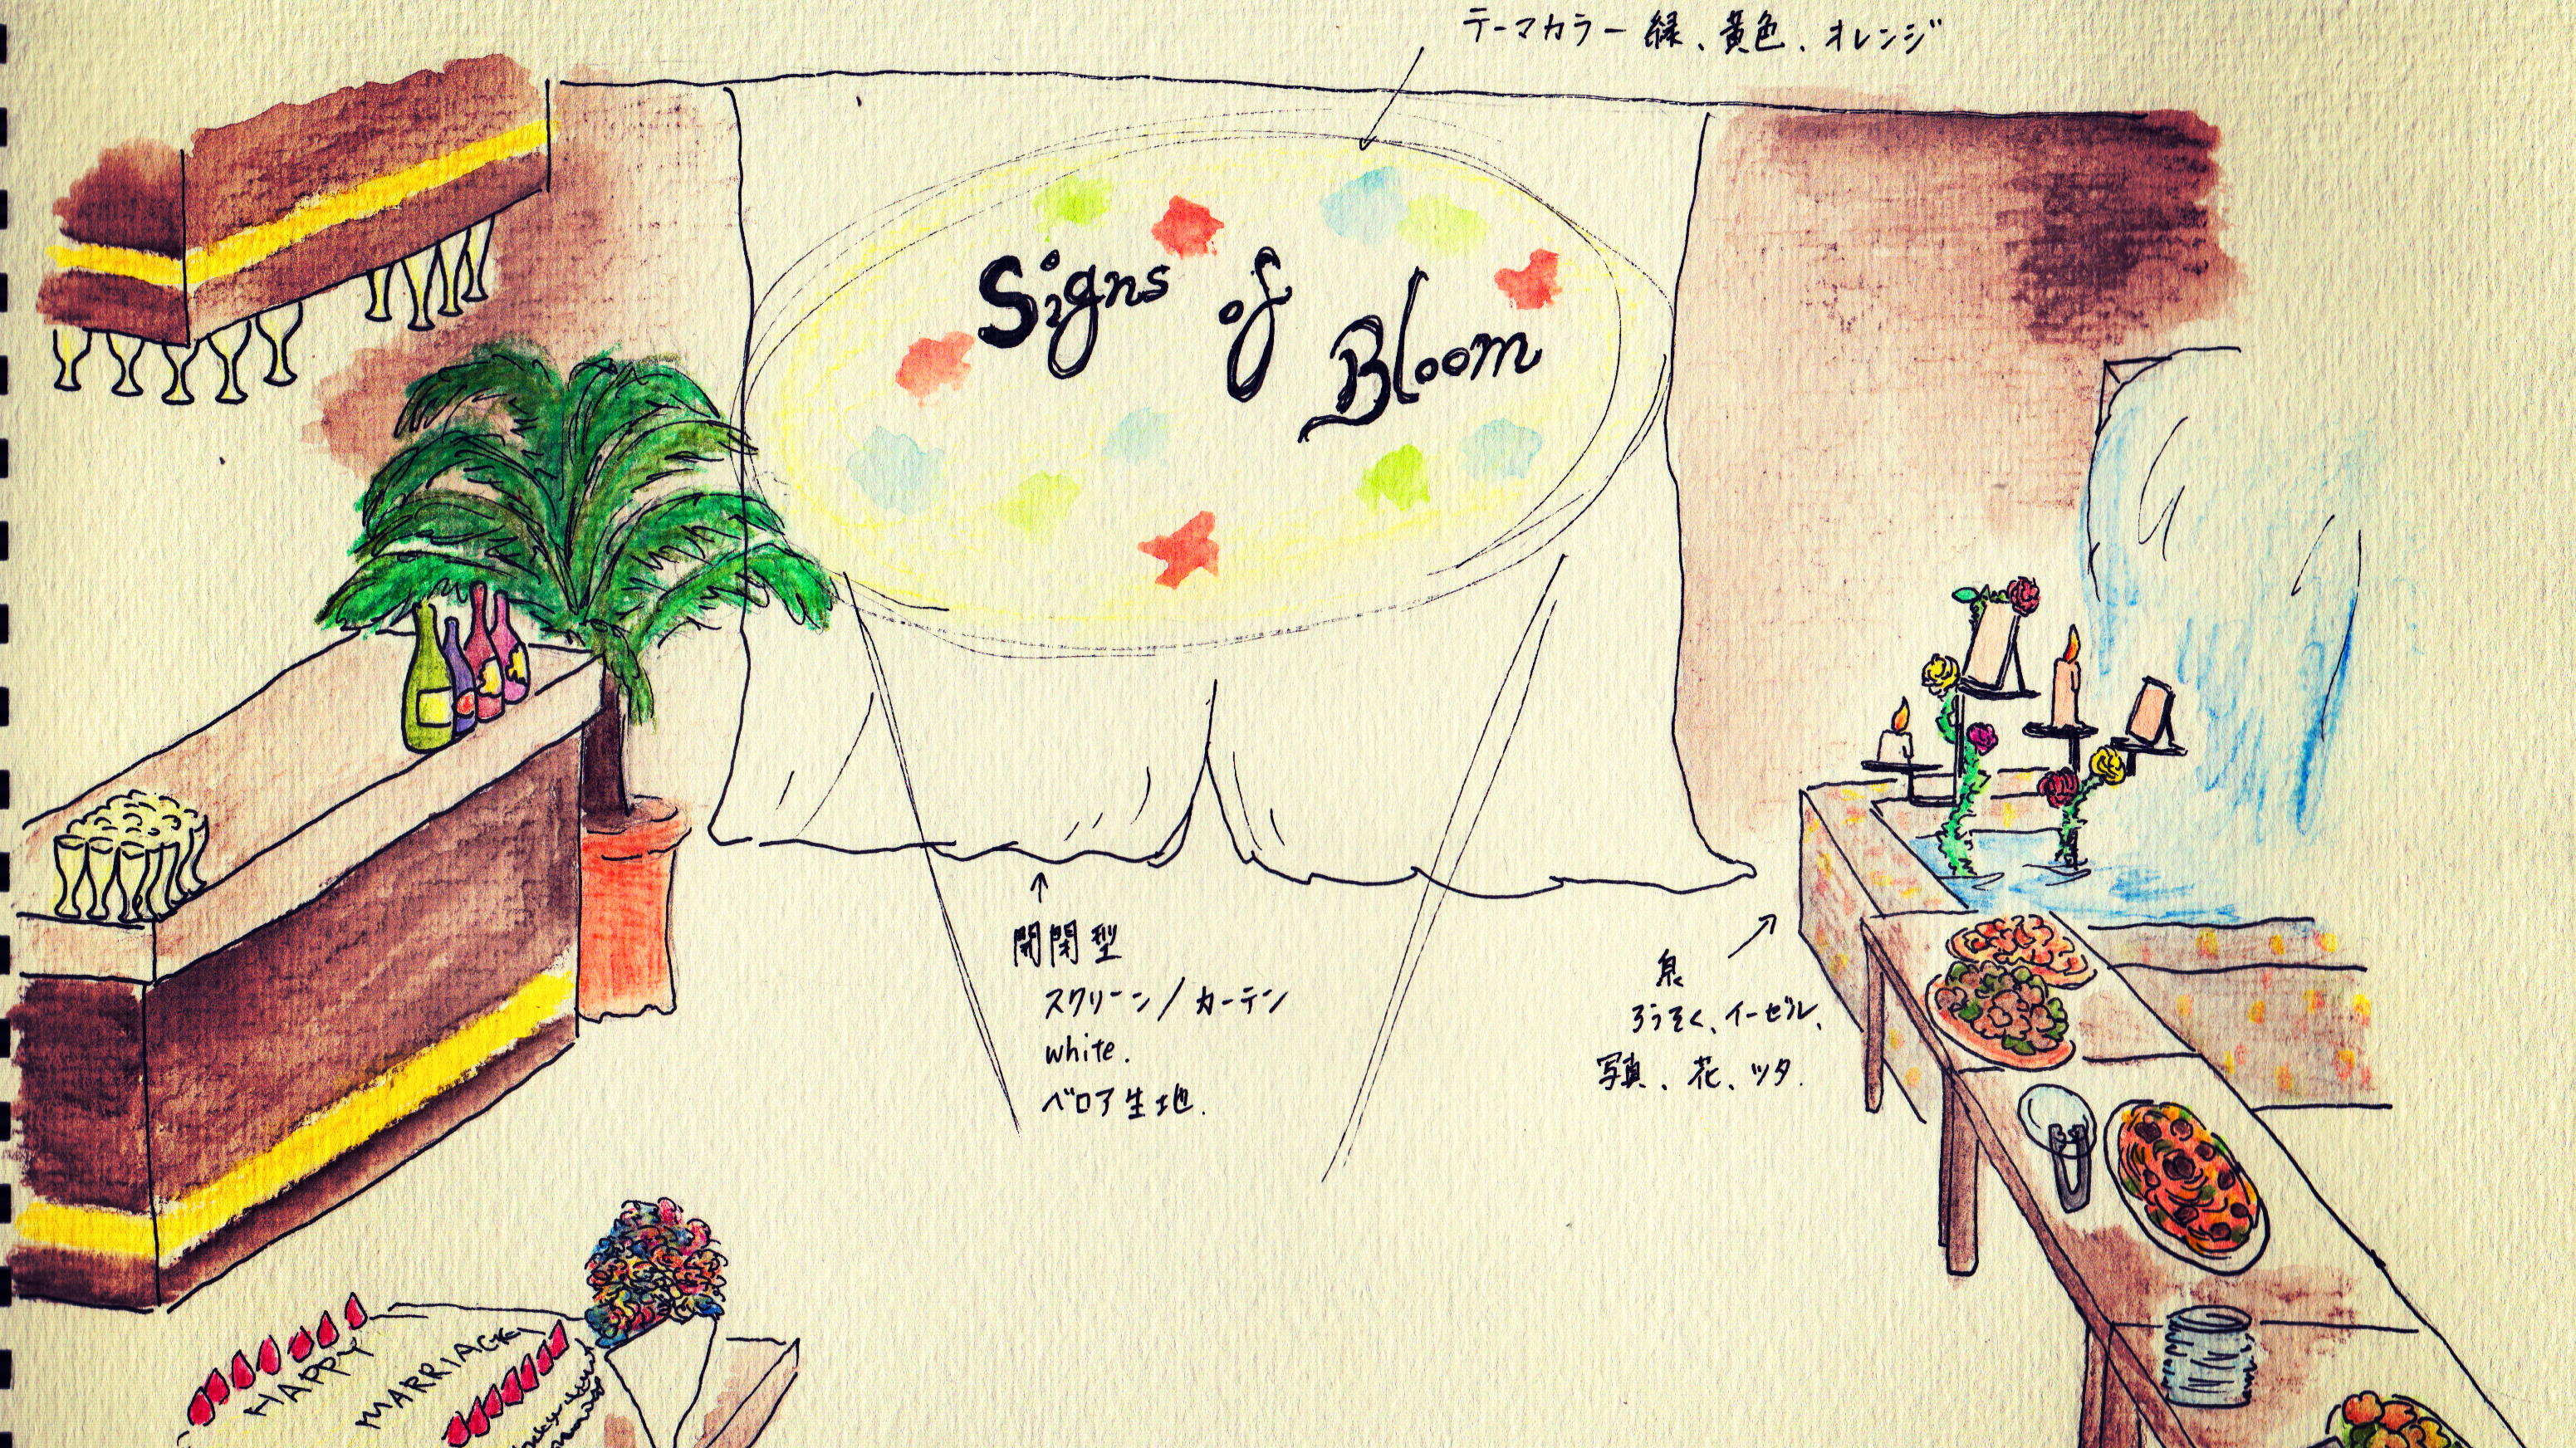 テーマカラー 緑、黄色、オレンジ
Signs of Bloom
開閉型
スクリーン/カーテン
white.
ベロア生地.
泉
ろうそく、イーゼル、
写真、花、ツタ.
HAPPY
MARRIAGE